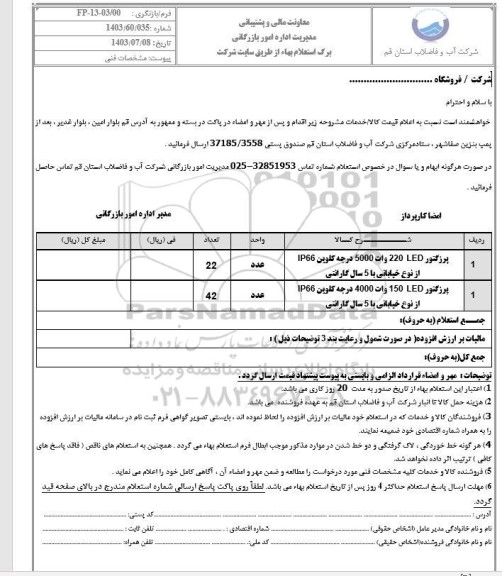 معاونت مالی و پشتیبانی
مدیریت اداره امور بازرگانی
برگ استعلام بهاء از طریق سایت شرکت
فرم/بازنگری: FP-13-03/00
شماره: 1403/60/035
تاریخ: 1403/07/08
پیوست: مشخصات فنی
شرکت آب و فاضلاب استان قم
شرکت / فروشگاه ................................
با سلام و احترام
خواهشمند است نسبت به اعلام قیمت کالا/خدمات مشروحه زیر اقدام و پس از مهر و امضاء در پاکت در بسته و ممهور به آدرس قم بلوار امین ، بلوار غدیر ، بعد از
پمپ بنزین صفاشهر ، ستادمرکزی شرکت آب و فاضلاب استان قم صندوق پستی 37185/3558 ارسال فرمائید .
در صورت هرگونه ابهام و یا سوال در خصوص استعلام شماره تماس 32851953-025 مدیریت امور بازرگانی شرکت آب و فاضلاب استان قم تماس حاصل
فرمائید .
امضا کارپرداز
مدیر اداره امور بازرگانی
ردیف شرح کالا واحد تعداد فی (ریال) مبلغ کل (ریال)
1 پرژکتور LED 220 وات 5000 درجه کلوین IP66 از نوع خیابانی با 5 سال گارانتی عدد 22
1 پرژکتور LED 150 وات 4000 درجه کلوین IP66 از نوع خیابانی با 5 سال گارانتی عدد 42
جمع استعلام (به حروف):
مالیات بر ارزش افزوده( در صورت شمول و رعایت بند 3 توضیحات ذیل ) :
جمع کل(به حروف):
توضیحات : مهر و امضاء قرارداد الزامی و بایستی به پیوست پیشنهاد قیمت ارسال گردد .
1) اعتبار این استعلام بهاء از تاریخ صدور به مدت 20 روز کاری می باشد.
2) هزینه حمل کالا تا انبار شرکت آب و فاضلاب استان قم به عهده فروشنده می باشد.
3) فروشندگان کالا و خدمات که در استعلام خود مالیات بر ارزش افزوده را لحاظ نموده اند ، بایستی تصویر گواهی فرم ثبت نام در سامانه مالیات بر ارزش افزوده
را به همراه شماره اقتصادی خود ضمیمه نمایند.
4) هر گونه خط خوردگی ، لاک گرفتگی و دو خط شدن در موارد مذکور موجب ابطال فرم استعلام بهاء می گردد . همچنین به استعلام های ناقص ( فاقد پاسخ های
کافی ) ترتیب اثر داده نخواهد شد.
5) فروشنده کالا و خدمات کلیه مشخصات فنی مورد درخواست را مطالعه و ضمن مهر و امضاء آن ، آگاهی کامل خود را اعلام می نماید .
6) مهلت ارسال پاسخ استعلام حداکثر 4 روز پس از تاریخ استعلام بهاء می باشد. لطفاً روی پاکت پاسخ ارسالی شماره استعلام مندرج در بالای صفحه قید
گردد.
آدرس : کد پستی:
نام و نام خانوادگی مدیر عامل (اشخاص حقوقی) : شماره اقتصادی : تلفن ثابت :
نام و نام خانوادگی فروشنده(اشخاص حقیقی) : کد ملی: تلفن همراه:
ParsNamadData